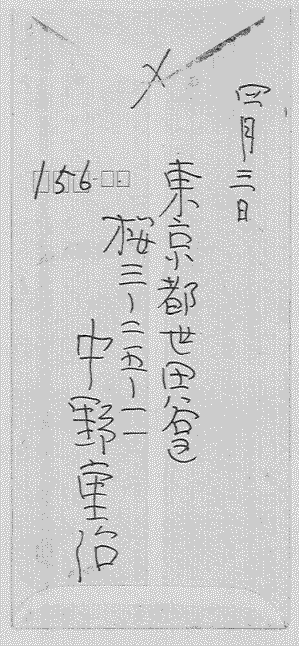 〆
四月三日
東京都世田谷区
桜三ー二五ー一一
中野重治
156